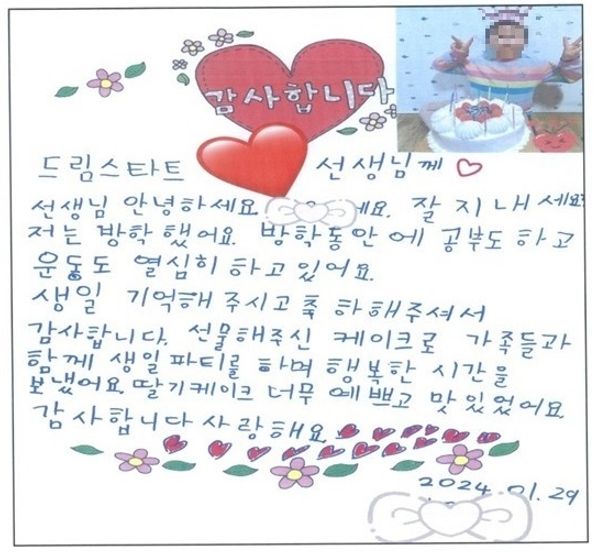 감사합니다
드림스타트 선생님께
선생님 안녕하세요 예요. 잘 지내세요?
저는 방학 했어요. 방학동안에 공부도 하고
운동도 열심히 하고 있어요.
생일 기억해 주시고 축하해주셔서
감사합니다. 선물해주신 케이크로 가족들과
함께 생일 파티를 하며 행복한 시간을
보냈어요. 딸기케이크 너무 예쁘고 맛있었어요.
감사합니다 사랑해요
2024. 01. 29